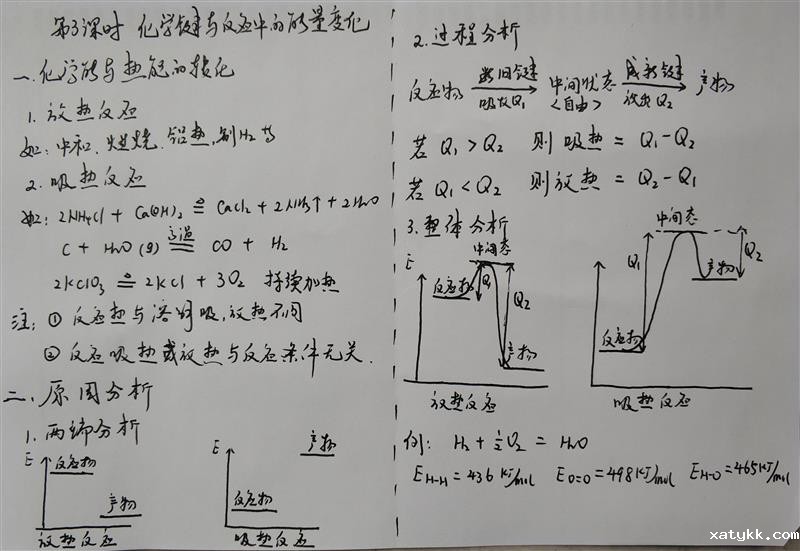 第3课时 化学键与反应中的能量变化
一、化学能与热能的转化
1. 放热反应
如: 中和、燃烧、铝热、制H₂等
2. 吸热反应
如: 2NH₄Cl + Ca(OH)₂ ≜ CaCl₂ + 2NH₃↑ + 2H₂O
C + H₂O(g) 高温 CO + H₂
2KClO₃ ≜ 2KCl + 3O₂ 持续加热
注: ① 反应热与溶解吸、放热不同
② 反应吸热或放热与反应条件无关.
二、原因分析
1. 两端分析
E 反应物 产物
放热反应
E 反应物 产物
吸热反应
2. 过程分析
反应物 断旧键 吸收Q₁ 中间状态 <自由> 成新键 放出Q₂ 产物
若 Q₁ > Q₂ 则 吸热 = Q₁-Q₂
若 Q₁ < Q₂ 则放热 = Q₂-Q₁
3. 整体分析
E 反应物 中间态 Q₁ Q₂ 产物
放热反应
反应物 Q₁ 中间态 产物 Q₂
吸热反应
例: H₂ + ½O₂ = H₂O
E H-H = 436 KJ/mol E O=O = 498 KJ/mol E H-O = 465 KJ/mol
xatykk.com